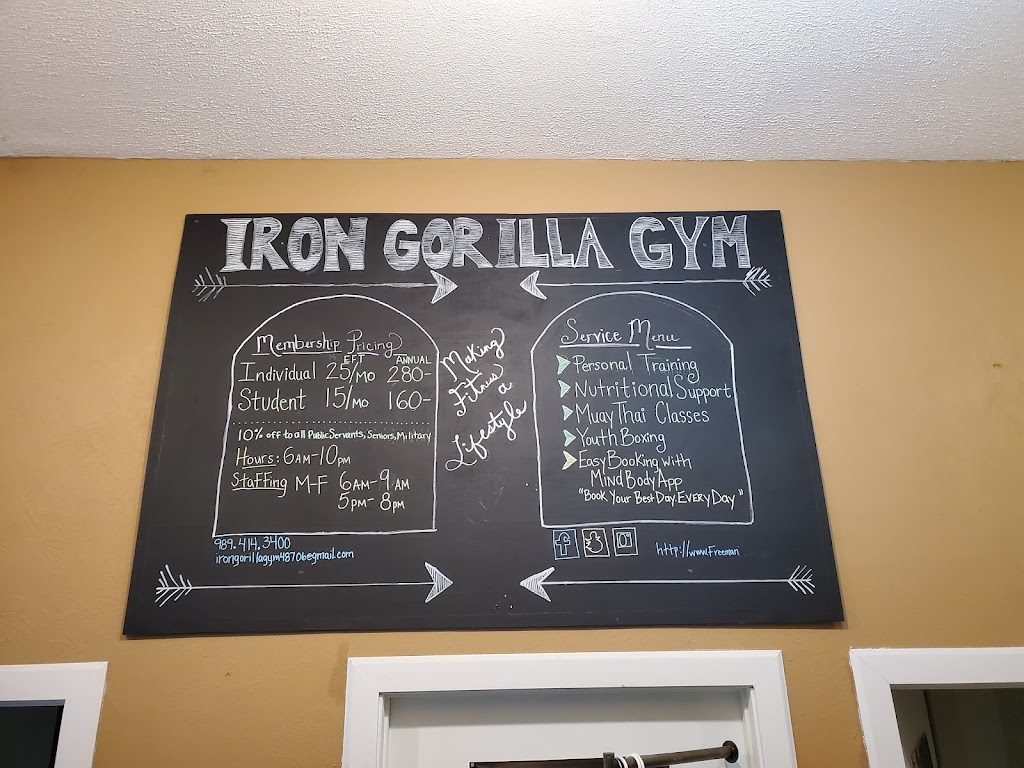 IRON GORILLA GYM
Membership Pricing
EFT ANNUAL
Individual 25/MO 280-
Student 15/MO 160-
10% off to all Public Servants, Seniors, Military
Hours: 6AM-10PM
Staffing M-F 6AM-9AM
5PM-8PM
989.414.3400
irongorillagym48706@gmail.com
Making
Fitness
a
Lifestyle
Service Menu
Personal Training
Nutritional Support
Muay Thai Classes
Youth Boxing
Easy Booking with
Mind Body App
"Book Your Best Day, EVERY Day"
f
http://www.Freeman